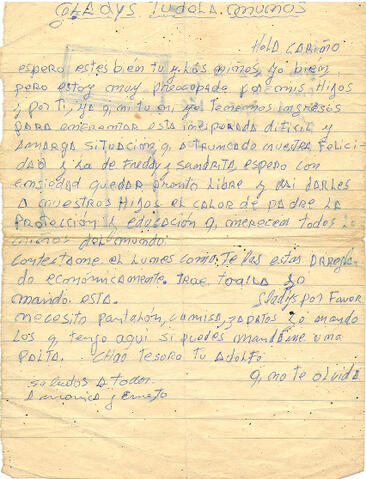 GLADYS
Hola Cariño
espero estes bien tu y los niños, yo bien
pero estoy muy preocupado por mis Hijos
y por ti, ya q, ni tu ni yo tenemos ingresos
para enfrentar esta inesperada dificil y
amarga situacion q, a truncado nuestra Felici-
dad y la de Freddy y Sandrita espero con
ansiedad quedar pronto libre y asi darles
a nuestros Hijos el calor de padre la
Protección y educación q, merecen todos
del mundo
Contestame el lunes como te las estas arregla
do económicamente. Trae toalla
mando esta. Gladys por Favor
necesito pantalón, camisa, zapatos mando
los q tengo aqui si puedes mandame una
Palta. Chao Tesoro tu Adolfo
q, no te olvida
Saludos a todos
a monica y Ernesto